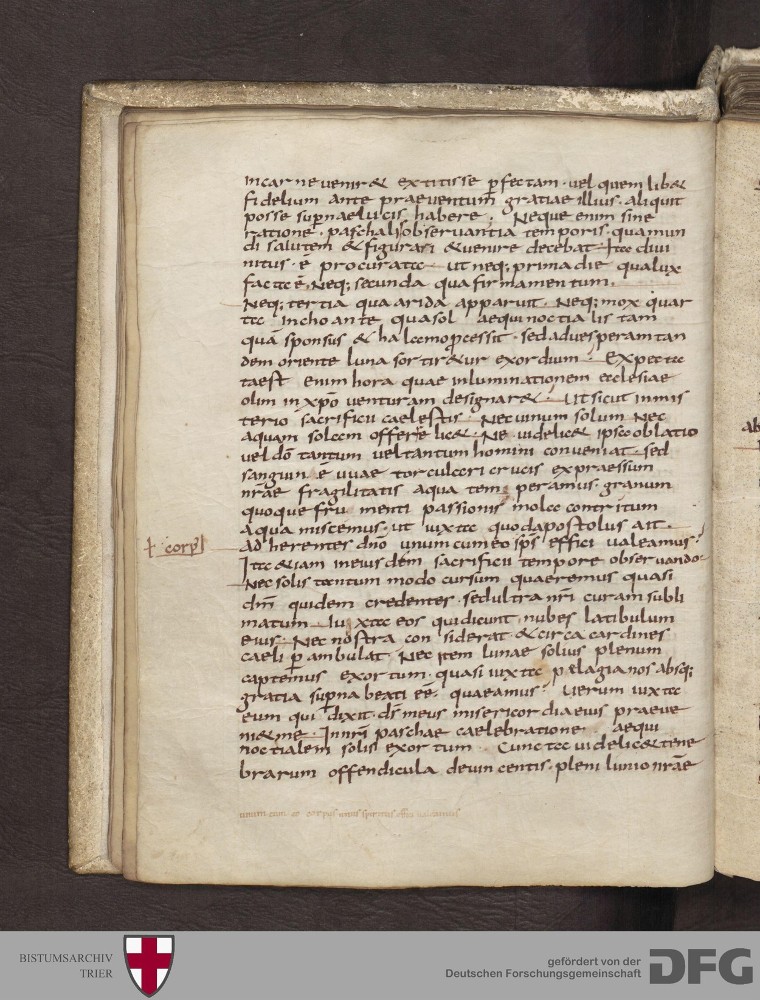 Incarne venir& extitisse ꝑfectam · vel quem lib&
fidelium ante praeventum gratiae illius · aliquit
posse suꝑnae lucis habere · Neque enim sine
ratione · paschalis observantia temporis · qua mun
di salutem & figurari & venire decebat · Ita divi
nitus · ē procurata ut neq; prima die qua lux
facta ē, Neq; secunda qua firmamentum ·
Neq; tertia qua arida apparuit · Neq; mox quar
ta inchoante qua sol aequinoctialis tam
quā sponsus & halamo processit · sed ad vesperam tan
dem oriente luna sortir&ur exordium · Expecta
ta est enim hora quae inluminationem ecclesiae
olim in xp̄o venturam designar& · Ut sicut in mis
terio sacrificii caelestis · Nec vinum solum Nec
aquam solam offere lic& · Ne videlic& ipsa oblatio
vel dō tantum vel tantum homini conveniat · sed
sanguini ē uvae torculari crucis expraessum
nr̄ae fragilitatis aqua temperamus · granum
quoque frumenti passionis mola contritum
aqua miscemus · ut iuxta quod apostolus ait ·
ad herentes dn̄o unum cum eo sp̄s effici valeamus ·
† corp⁹
Ita &iam in eiusdem sacrificii tempore observando ·
Nec solis tantum modo cursum quaeremus quasi
dm̄ quidem credentes · sed ultra nr̄i curam subli
matum · Iuxta eos qui dicunt · nubes latibulum
eius · Nec nostra considerat · & circa cardines
caeli ꝑambulat · Nec item lunae solius plenum
captemus exortum · quasi iuxta pelagianos absq;
gratia suꝑna beati eē · quaeamus · Verum iuxta
eum qui dixit · ds̄ meus misericordia eius praeve
ni&me · In nr̄i paschae caelebratione · aequi
noctialem solis exortum · Cuncta videlic& tene
brarum offendicula devincentis · plenilunio nr̄ae
unum cum eo corpus unus spiritus effici valeamus
ab
BISTUMSARCHIV
TRIER
gefördert von der
Deutschen Forschungsgemeinschaft
DFG